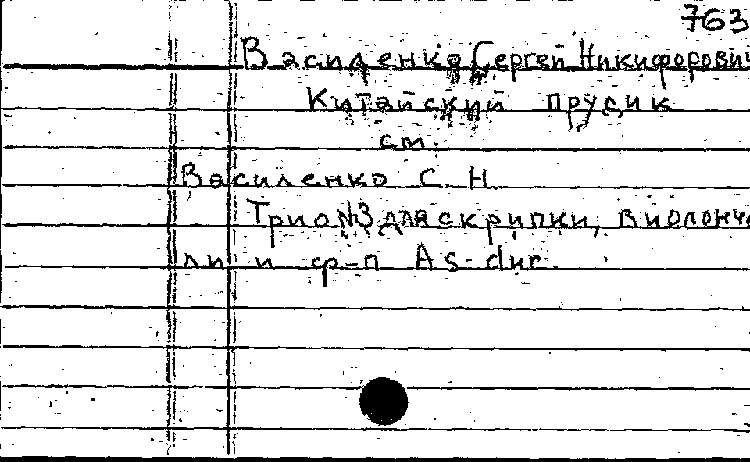 763
Василенко Сергей Никифорович
Китайский прудик
см.
Василенко С. Н.
Трио №3 для скрипки, виолонче
ли и ф-п As-dur.